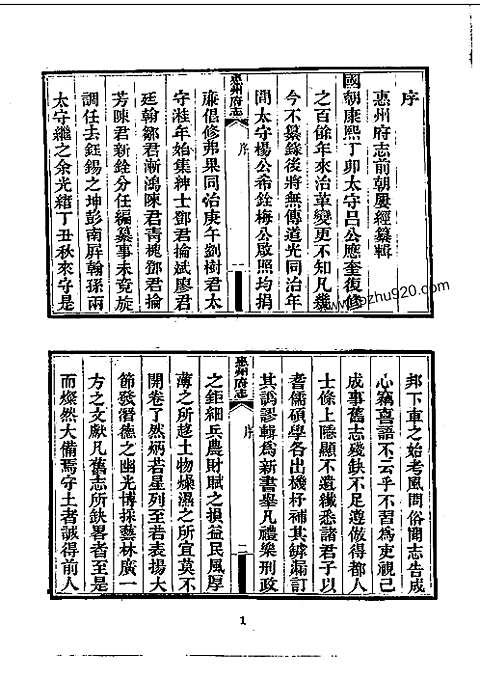 序
惠州府志前朝屢經纂輯
國朝康熙丁卯太守呂公應奎復修
之百餘年來沿革變更不知凡幾
今不纂錄後將無傳道光同治年
間太守楊公希銓梅公啟照均捐
惠州府志
序
一
廉倡修弗果同治庚午劉樹君太
守溎年始集紳士鄧君掄斌廖君
廷翰鄒君漸鴻陳君壽槐鄧君掄
芳陳君新銓分任編纂事未竟旋
調任去鈺錫之坤彭南屏翰孫兩
太守繼之余光緒丁丑秋來守是
邦下車之始考風問俗聞志告成
心竊喜語不云乎不習為吏視己
成事舊志殘缺不足遵倣得都人
士條上隱顯不遺纖悉諸君子以
耆儒碩學各出機杼補其罅漏訂
其譌謬輯為新書舉凡禮樂刑政
惠州府志
序
二
之鉅細兵農財賦之損益民風厚
薄之所趍土物燥濕之所宜莫不
開卷了然炳若星列至若表揚大
節發潛德之幽光博採藝林廣一
方之文獻凡舊志所缺畧者至是
而燦然大備焉守土者誠得前人
1